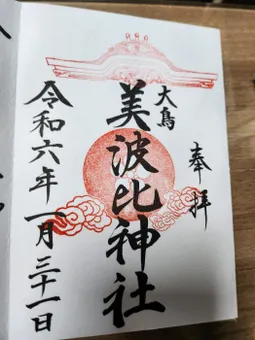 奉拝
大鳥
美波比神社
令和六年一月三十一日